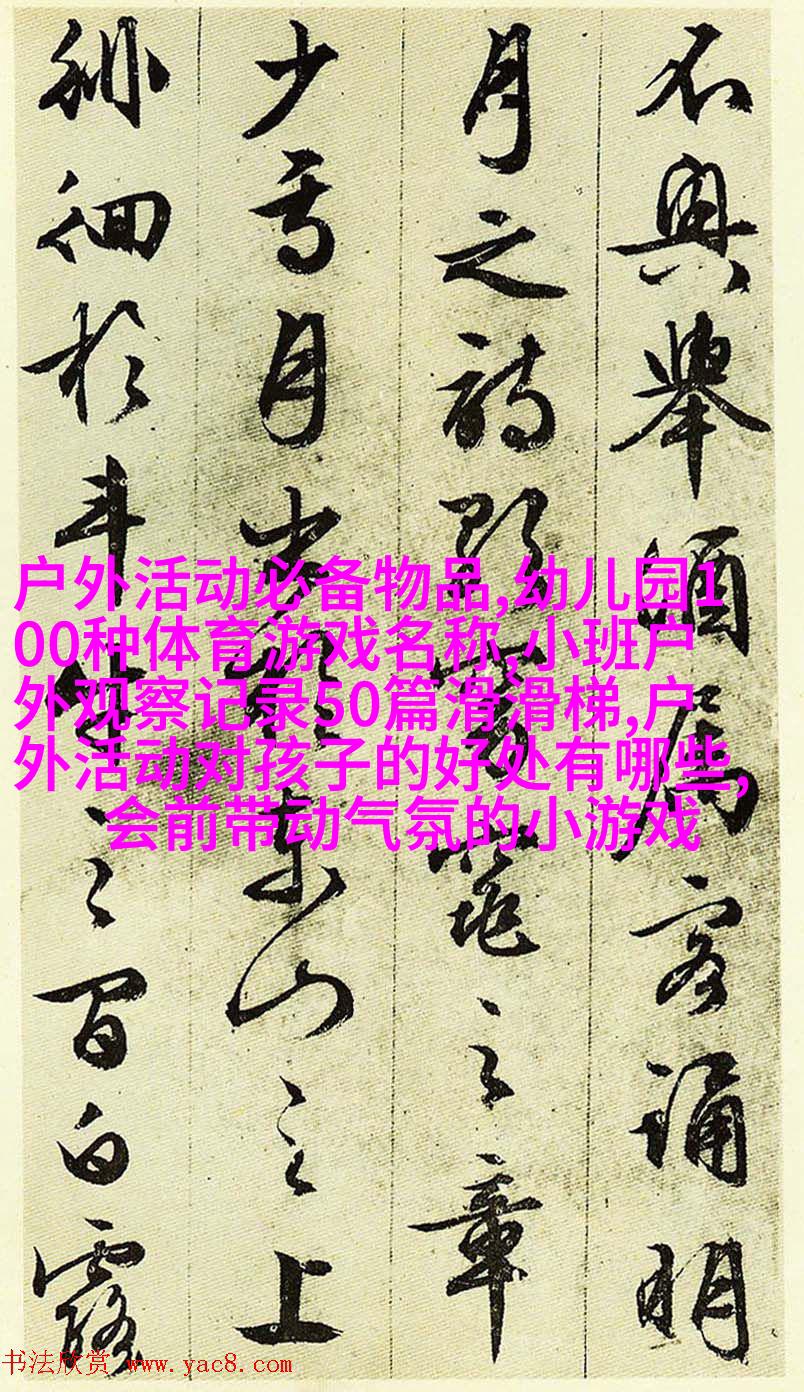 不興舉酒属客誦明
月之詩歌窈窕之章
少焉月出於東山之上
徘徊於斗牛之間白露
户外活动必备物品,幼儿园1
00种体育游戏名称,小班户
外观察记录50篇滑滑梯,户
外活动对孩子的好处有哪些,
会前带动气氛的小游戏
书法欣赏 www.yac8.com